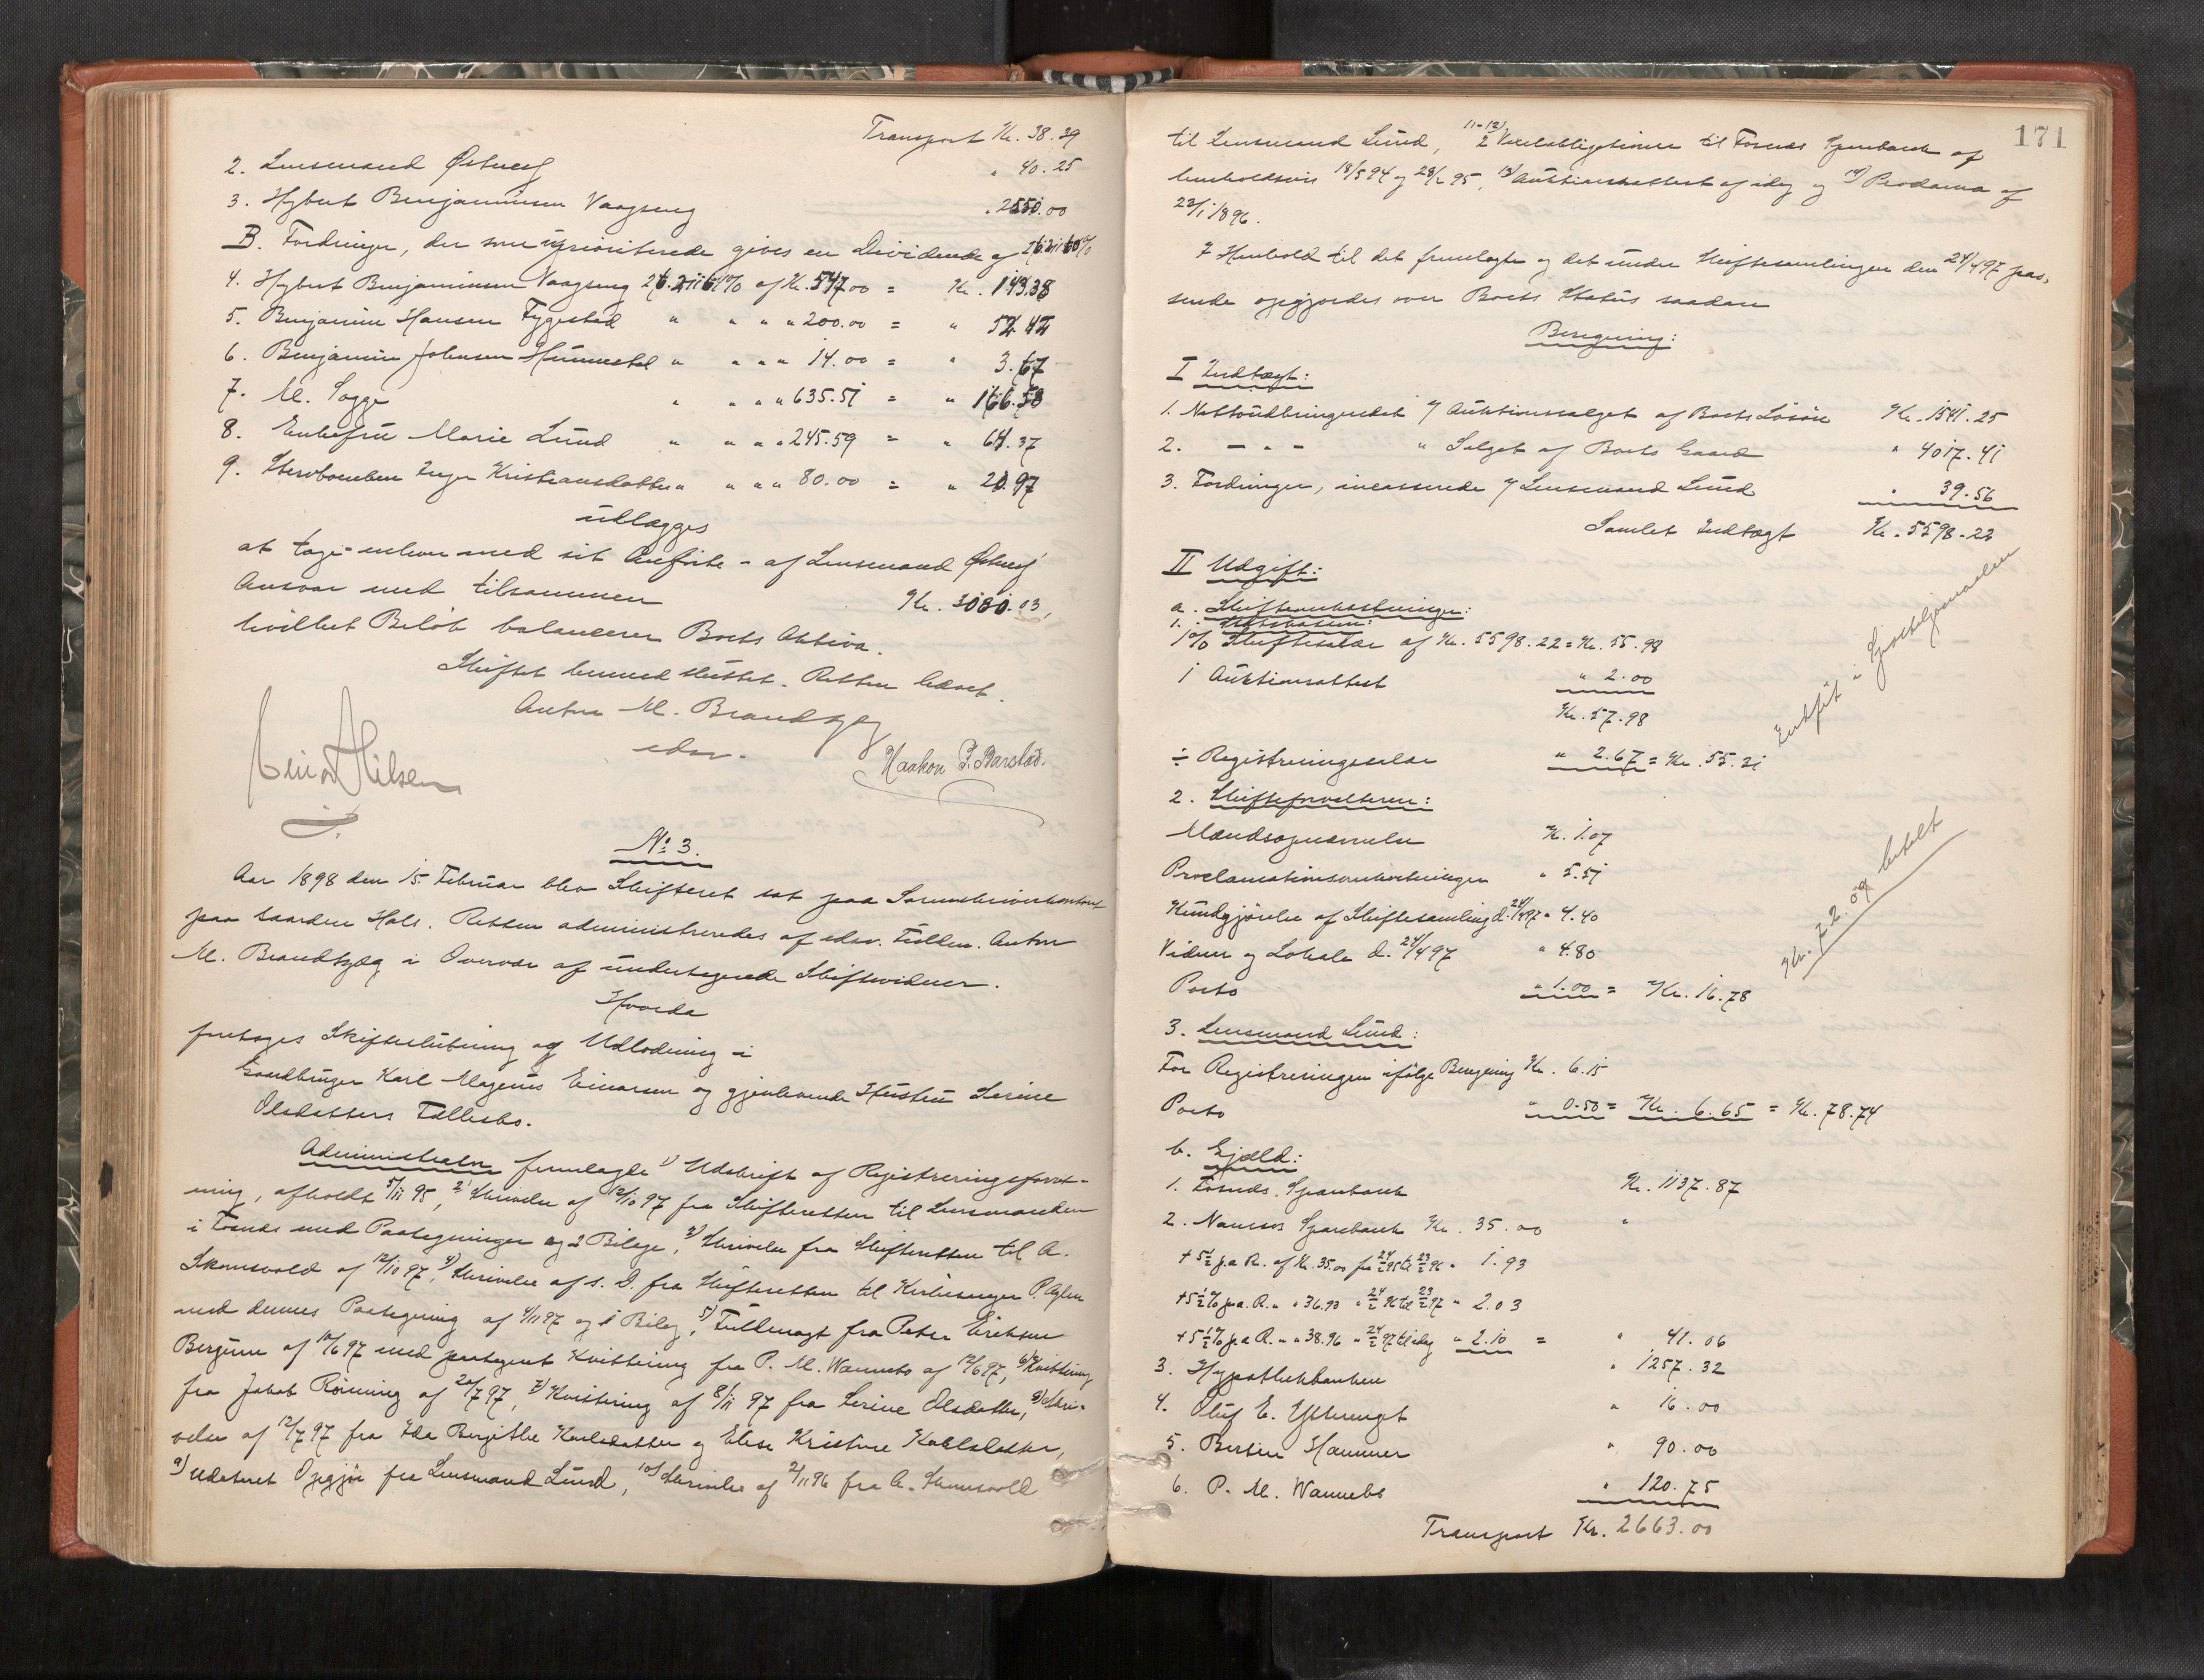 Transport Kr. 38.39
2. Lensmand Østvig " 40.25
3. Hybert Benjaminsen Vaagseng " 2550.00
B. Fordringer, der som uprioriterede gives en Dividende af 26.21160%
4. Hybert Benjaminsen Vaagseng 26.2116% af Kr. 547.00 = Kr. 143.38
5. Benjamin Hansen Fygestad " " " " 200.00 = " 52.42
6. Benjamin Johnsen Hummestad " " " " 14.00 = " 3.67
7. M. Sagge " " " " 635.51 = " 166.58
8. Enkefru Marie Lund " " " " 245.59 = " 64.37
9. Stervboenken Inger Kristiansdatter " " " " 80.00 = " 20.97
udlægges
at tage - enhver med sit Anførte - af Lensmand Østvig
Ansvar med tilsammen Kr. 3080.03,
hvilket Beløb balancerer Boets Aktiva.
Skiftet hermed sluttet. Retten hævet.
Anton M. Brandtzæg
edsv.
Einar Nilsen
Haakon P. Barstad.
No 3.
Aar 1898 den 15. Februar blev Skifteret sat paa Sorenskriverkontoret
paa Gaarden Hals. Retten administreredes af edsv. Fuldm. Anton
M. Brandtzæg i Overvær af undertegnede Skiftevidner.
Hvorda
foretoges Skifteslutning og Udlodning i
Gaardbruger Karl Magnus Einarsen og gjenlevende Hustru Serine
Olsdatters Fællesbo.
Administrator fremlagde 1) Udskrift af Registreringsforret-
ning, afholdt 5/11 95, 2) Skrivelse af 12/10 97 fra Skifteretten til Lensmanden
i Fosnes med Paategninger og 2 Bilage, 3) Skrivelse fra Skifteretten til A.
Skomsvold af 12/10 97, 4) Skrivelse af s. D. fra Skifteretten til Kirkesanger P. Aglen
med dennes Paategning af 4/11 97 og 1 Bilag, 5) Fuldmagt fra Peter Eriksen
Bergum af 10/6 97 med paategnet Kvittering fra P. M. Wannebo af 12/6 97, 6) Kvittering
fra Jakob Rønning af 20/7 97, 7) Kvittering af 8/11 97 fra Serine Olsdatter, 8) Skri-
velse af 12/7 97 fra Ida Bergithe Karlsdatter og Elise Kristine Karlsdatter,
9) udateret Opgjør fra Lensmand Lund, 10) Skrivelse af 2/11 96 fra A. Skomsvold
171
til Lensmand Lund, 11-12) 2 Vexelobligationer til Fosnes Sparebank af
henholdsvis 18/5 94 og 28/2 95, 13) Auktionsattest af idag og 14) Proclama af
23/1 1896.
I Henhold til det fremlagte og det under Skiftesamlingen den 24/4 97 pas-
serede opgjordes over Boets Status saadan
Beregning:
I Indtægt:
1. Nettoudbringendet v/ Auktionssalget af Boets Løsøre Kr. 1541.25
2. — " — " Salget af Boets Gaard " 4017.41
3. Fordringer, incasserede v/ Lensmand Lund " 39.56
Samlet Indtægt Kr. 5598.22
II Udgift:
a. Skifteomkostninger:
1. Statskassen:
1% Skiftesalær af Kr. 5598.22 = Kr. 55.98
1 Auktionsattest " 2.00
Kr. 57.98
÷ Registreringssalær " 2.67 = Kr. 55.31
Indført i Sporteljournalen
2. Skifteforvalteren:
Mændsopnævnelse Kr. 1.07
Proclamationsomkostninger " 5.51
Kundgjørelse af Skiftesamling d. 24/4 97 " 4.40
Vidner og Lokale d. 24/4 97 " 4.80
Porto " 1.00 = Kr. 16.78
Kr. 72.09 betalt
3. Lensmand Lund:
For Registreringen ifølge Beregning Kr. 6.15
Porto " 0.50 = Kr. 6.65 = Kr. 78.74
b. Gjæld:
1. Fosnes Sparebank Kr. 1137.87
2. Namsos Sparebank Kr. 35.00 "
+ 5½ p.a. R. af Kr. 35.00 fra 24/2 95 til 23/2 96 " 1.93
+ 5½% p.a. R. " " 36.93 " 24/2 96 til 23/2 97 " 2.03
+ 5½% p.a. R. " " 38.96 " 24/2 97 til idag " 2.10 = " 41.06
3. Hypothekbanken " 1257.32
4. Oluf E. Ytterenget " 16.00
5. Bertin Hammer " 90.00
6. P. M. Wannebo " 120.75
Transport Kr. 2663.00